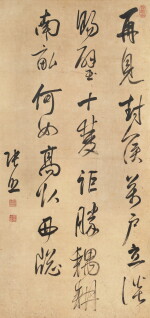 再見封侯萬戶立談
賜璧十雙詎勝耦耕
南畝何如高臥東窗
張照